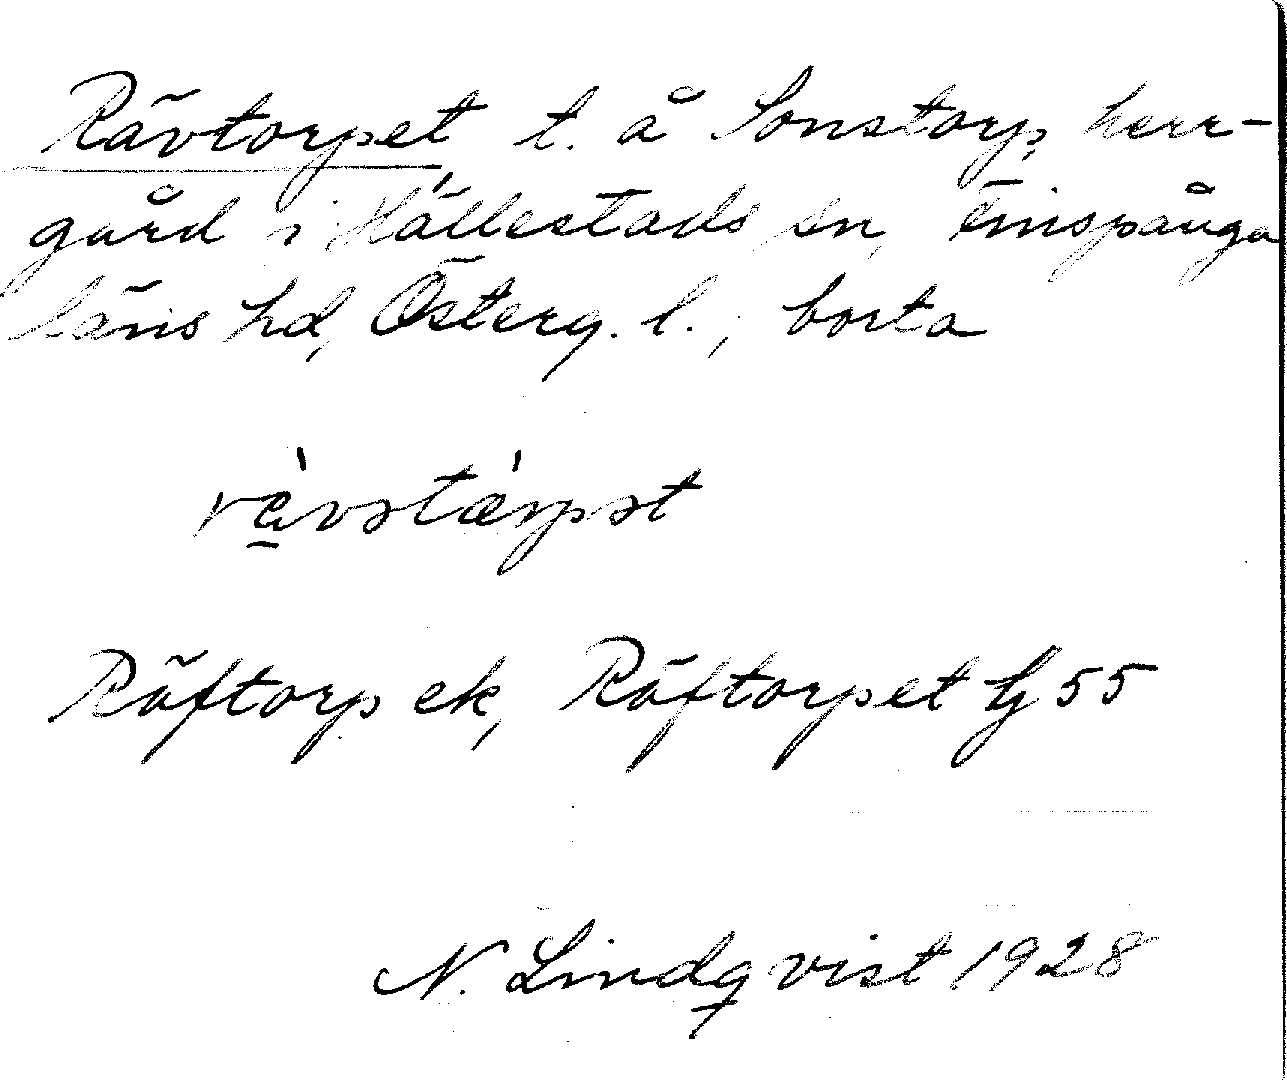 Rävtorpet t. å Sonstorp, herr-
gård i Hällestads sn, Finspånga
läns hd, Österg. l., borta
Räftorp ek, Räftorpet Hj 55
N. Lindqvist 1928